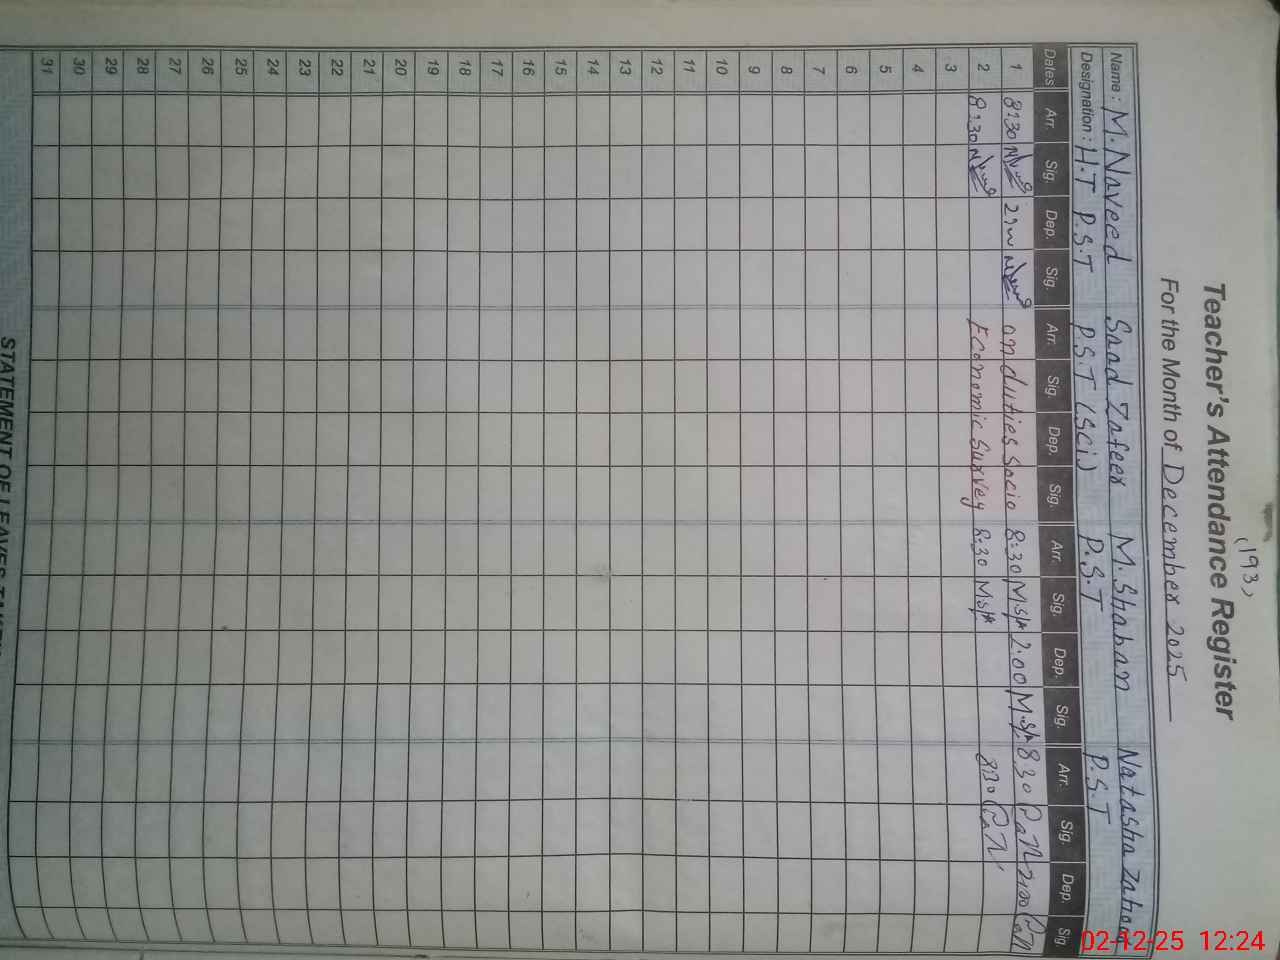 (193)
Teacher's Attendance Register
For the Month of December 2025
Name : M. Naveed Saad Zafeer M. Shaban Natasha
Designation : H.T P.S.T P.S.T (Sci) P.S.T P.S.T
Dates Arr. Sig. Dep. Sig. Arr. Sig. Dep. Sig. Arr. Sig. Dep. Sig. Arr. Sig. Dep. Sig.
1 8:30 on duties Socio 8:30 2:00 8:30 2:00
2 8:30 Economic Survey 8:30 8:30
3
4
5
6
7
8
9
10
11
12
13
14
15
16
17
18
19
20
21
22
23
24
25
26
27
28
29
30
31
STATEMENT OF LEAVES TAKEN
02-12-25 12:24